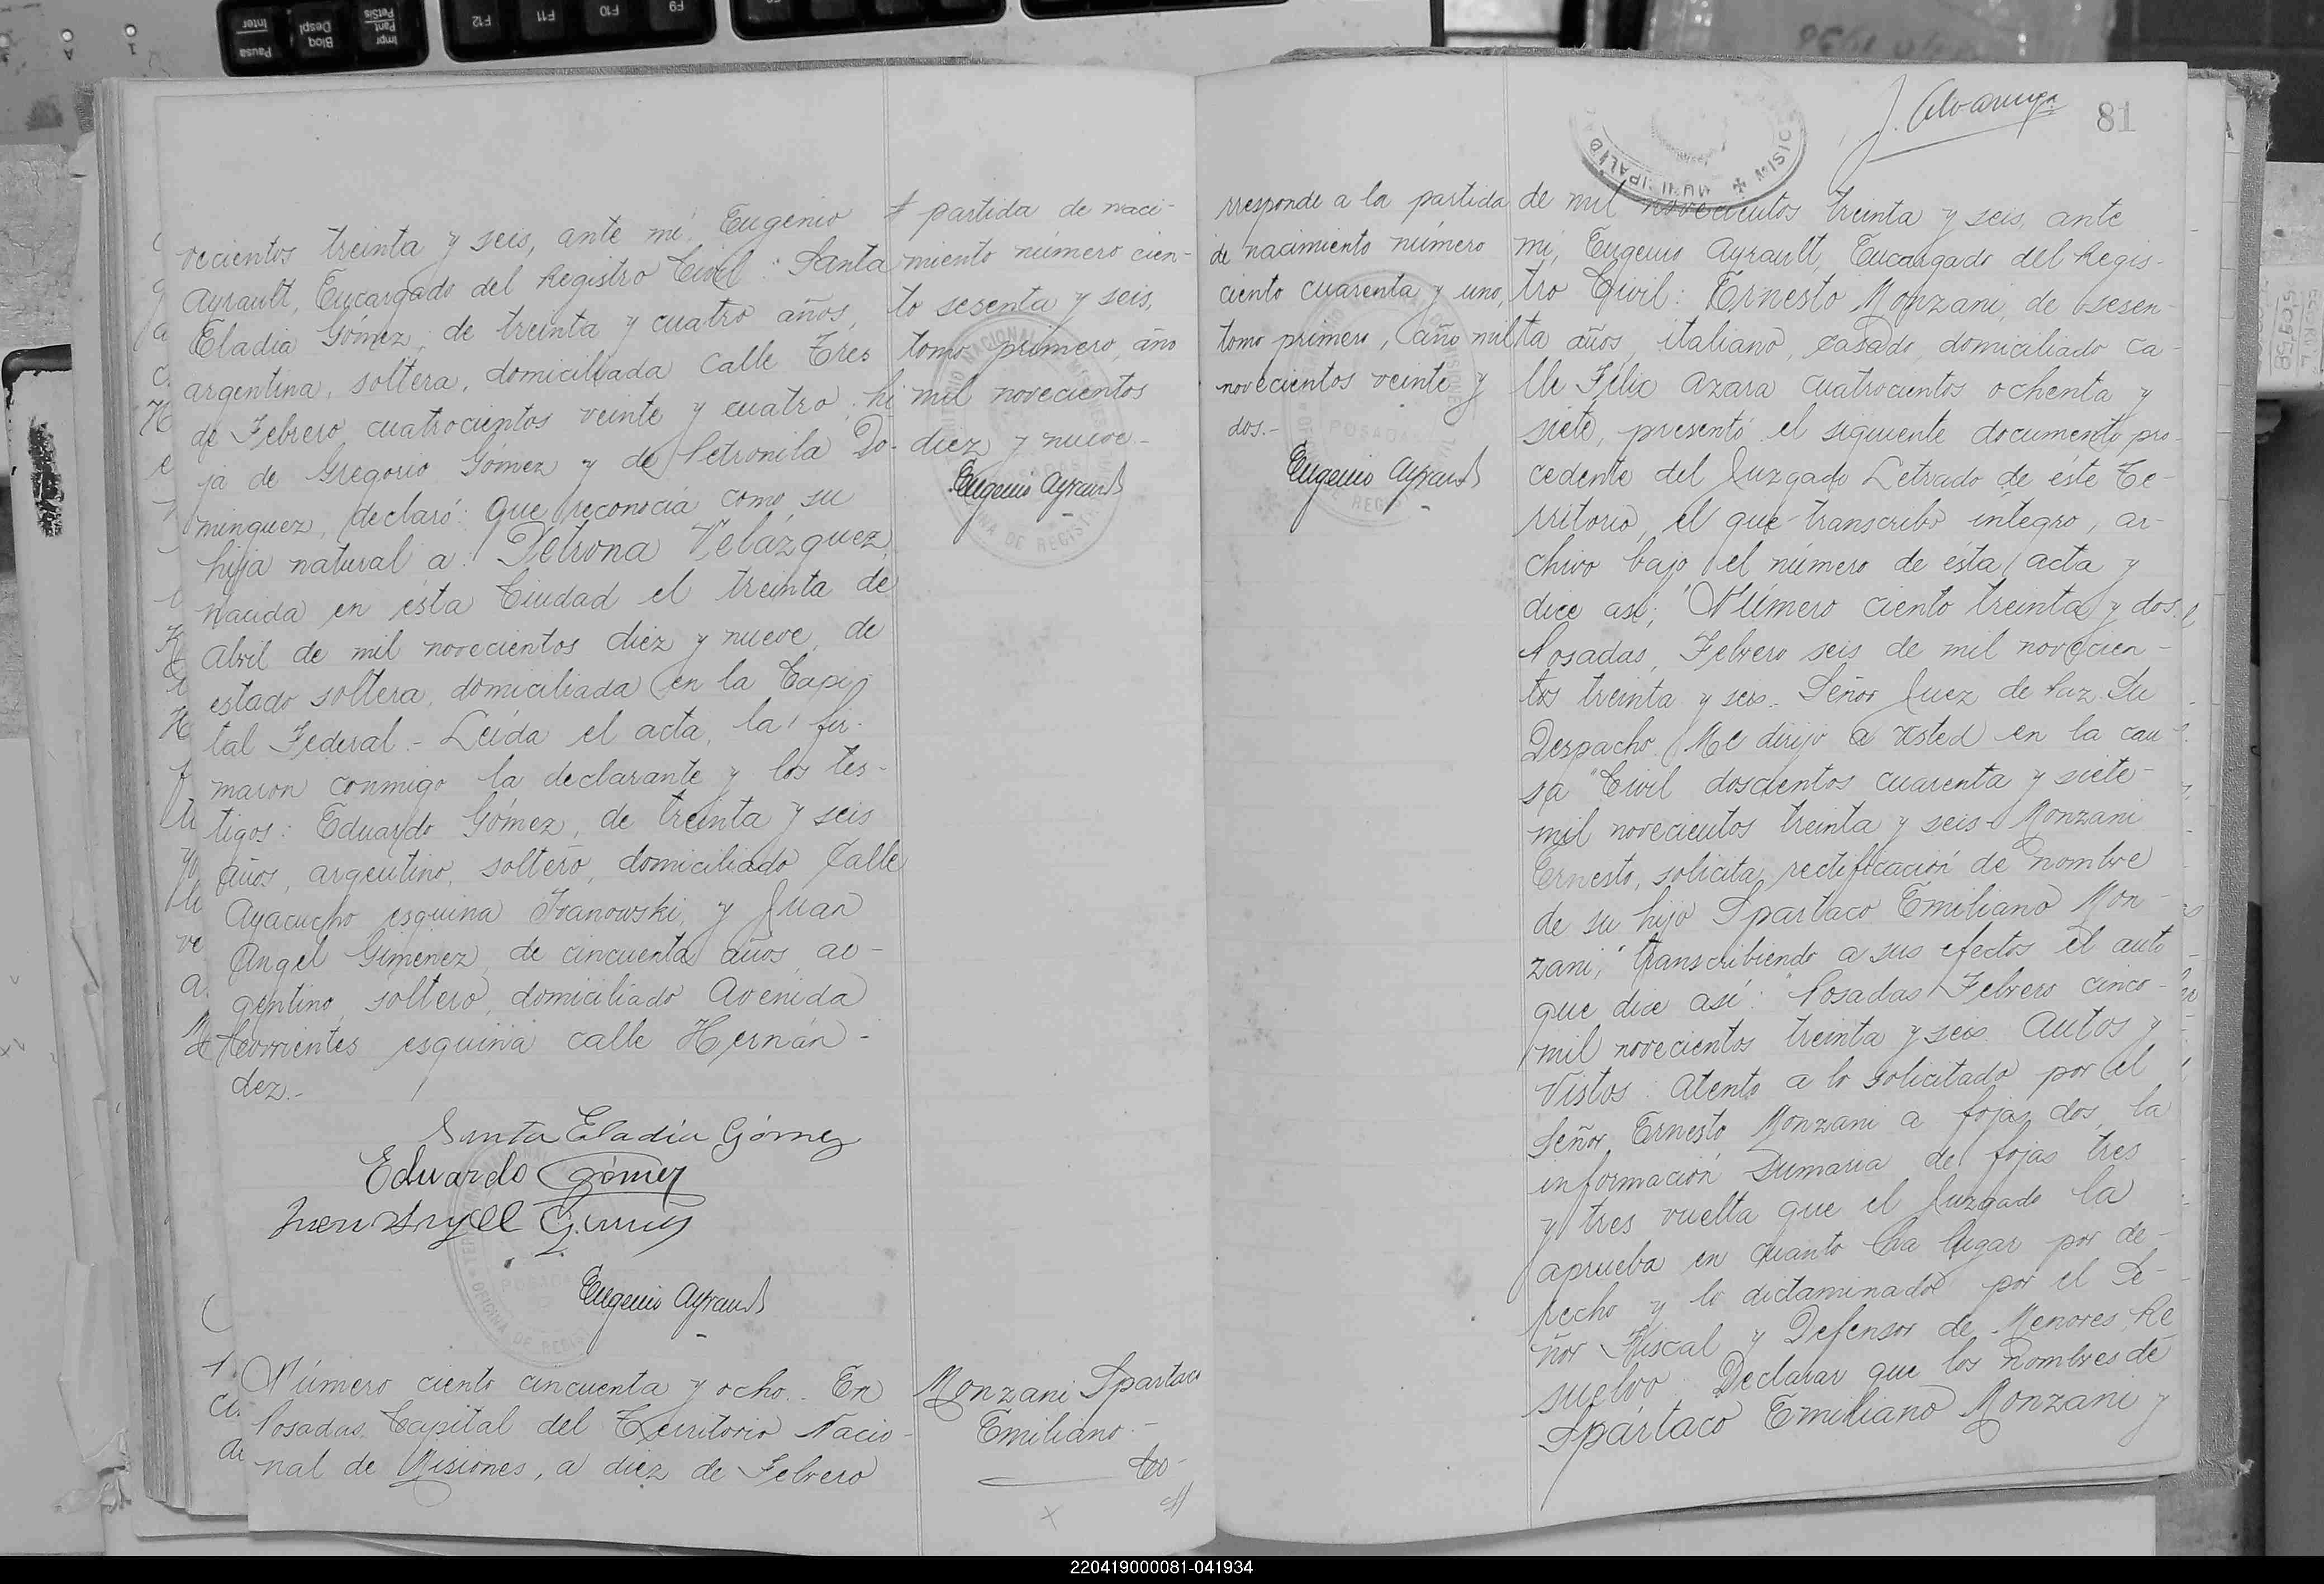 vecientos treinta y seis, ante mí, Eugenio
Ayrault, Encargado del Registro Civil: Santa
Eladia Gómez, de treinta y cuatro años,
argentina, soltera, domiciliada calle Tres
de Febrero cuatrocientos veinte y cuatro, hi
ja de Gregorio Gómez y de Petronila Do-
minguez, declaró: Que reconocía como su
hija natural a: Petrona Velázquez,
nacida en ésta Ciudad el treinta de
Abril de mil novecientos diez y nueve, de
estado soltera, domiciliada en la Capi
tal Federal.- Leída el acta, la fir-
maron conmigo la declarante y los tes-
tigos: Eduardo Gómez, de treinta y seis
años, argentino, soltero, domiciliado Calle
Ayacucho esquina Ivanowski, y Juan
Angel Gimenez, de cincuenta años, ar-
gentino, soltero, domiciliado Avenida
Corrientes esquina calle Hernán-
dez.-
Santa Eladia Gómez
Eduardo Gómez
Juan Angel Gimenez
Eugenio Ayrault
Número ciento cincuenta y ocho.. En
Posadas, Capital del Territorio Nacio-
nal de Misiones, a diez de Febrero
partida de naci-
miento número cien-
to sesenta y seis,
tomo primero, año
mil novecientos
diez y nueve.-
Eugenio Ayrault
Monzani Spartaco
Emiliano.-
rresponde a la partida
de nacimiento número
ciento cuarenta y uno,
tomo primero, año mil
novecientos veinte y
dos.-
Eugenio Ayrault
81
MUNICIPALID
de mil novecientos treinta y seis, ante
mí, Eugenio Ayrault, Encargado del Regis-
tro Civil: Ernesto Monzani, de sesen-
ta años, italiano, casado, domiciliado ca-
lle Félix Azara cuatrocientos ochenta y
siete, presentó el siguiente documento pro-
cedente del Juzgado Letrado de éste Te-
rritorio, el que transcribo íntegro, ar-
chivo bajo el número de ésta acta y
dice así; "Número ciento treinta y dos.
Posadas, Febrero seis de mil novecien-
tos treinta y seis.- Señor Juez de Paz. Su
Despacho. Me dirijo a Usted en la cau
sa "Civil doscientos cuarenta y siete-
mil novecientos treinta y seis- Monzani
Ernesto, solicita rectificación de nombre
de su hijo Spartaco Emiliano Mon-
zani," transcribiendo a sus efectos el auto
que dice así: "Posadas Febrero cinco-
mil novecientos treinta y seis. Autos y
Vistos: Atento a lo solicitado por el
Señor Ernesto Monzani a fojas dos, la
información Sumaria de fojas tres
y tres vuelta que el Juzgado la
aprueba en cuanto ha lugar por de-
recho y lo dictaminado por el Se-
ñor Fiscal y Defensor de Menores, Re
suelvo: Declarar que los nombres de
Spártaco Emiliano Monzani y
220419000081-041934